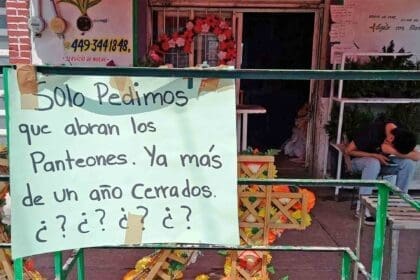 449·344·1848
SERVICIO DE
Solo Pedimos
que abran los
Panteones. Ya más
de un año Cerrados.
¿? ¿? ¿? ¿?